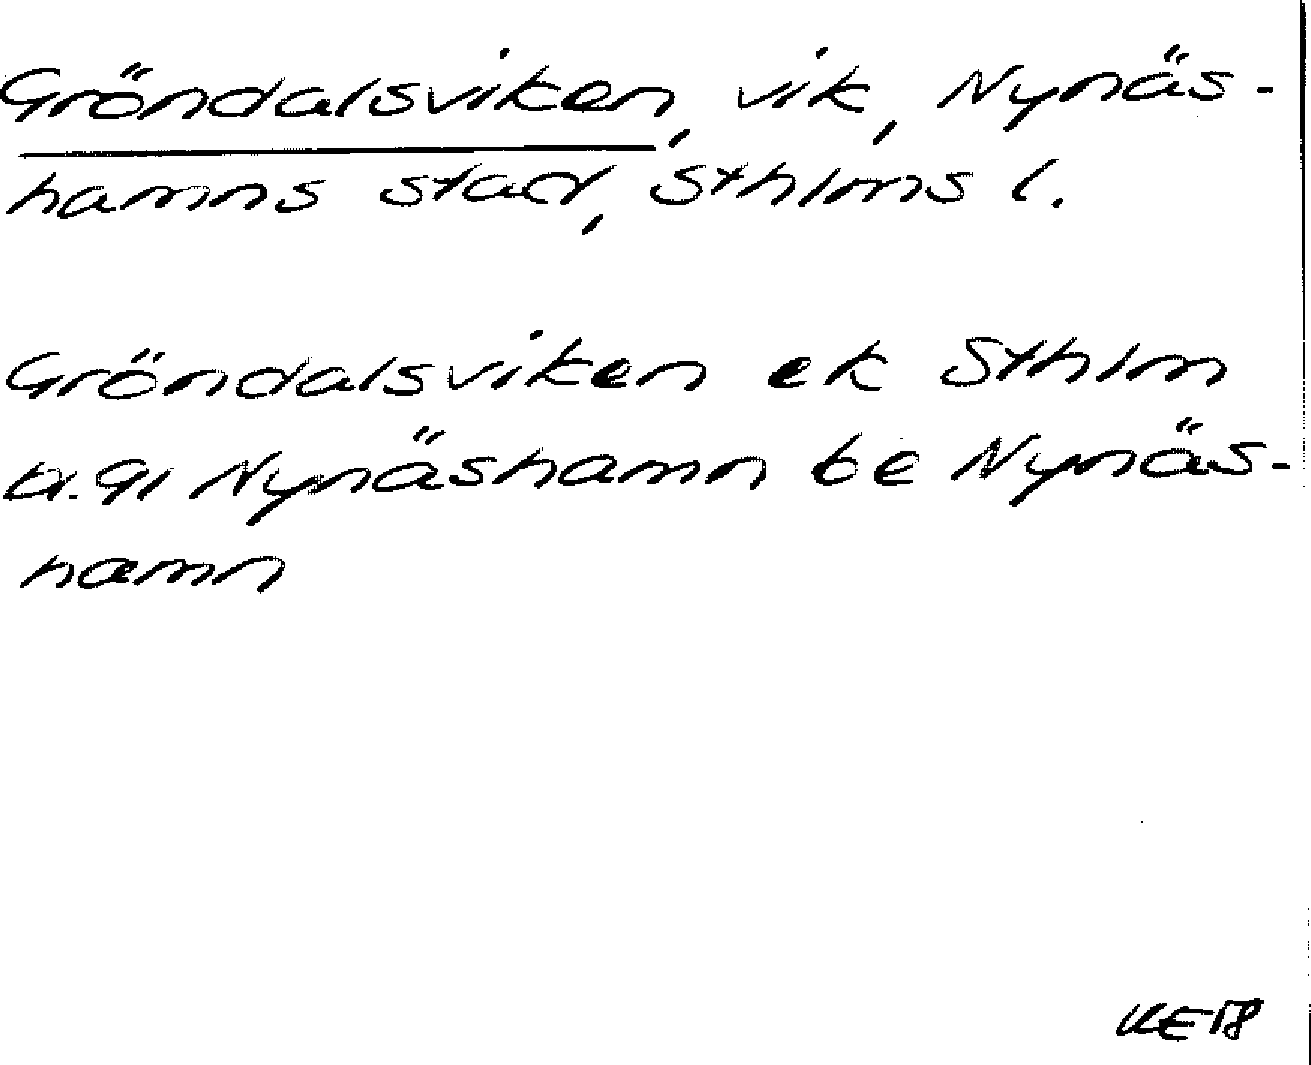 Gröndalsviken, vik, Nynäs-
hamns stad, Sthlms l.
Gröndalsviken ek Sthlm
bl. 91 Nynäshamn be Nynäs-
hamn